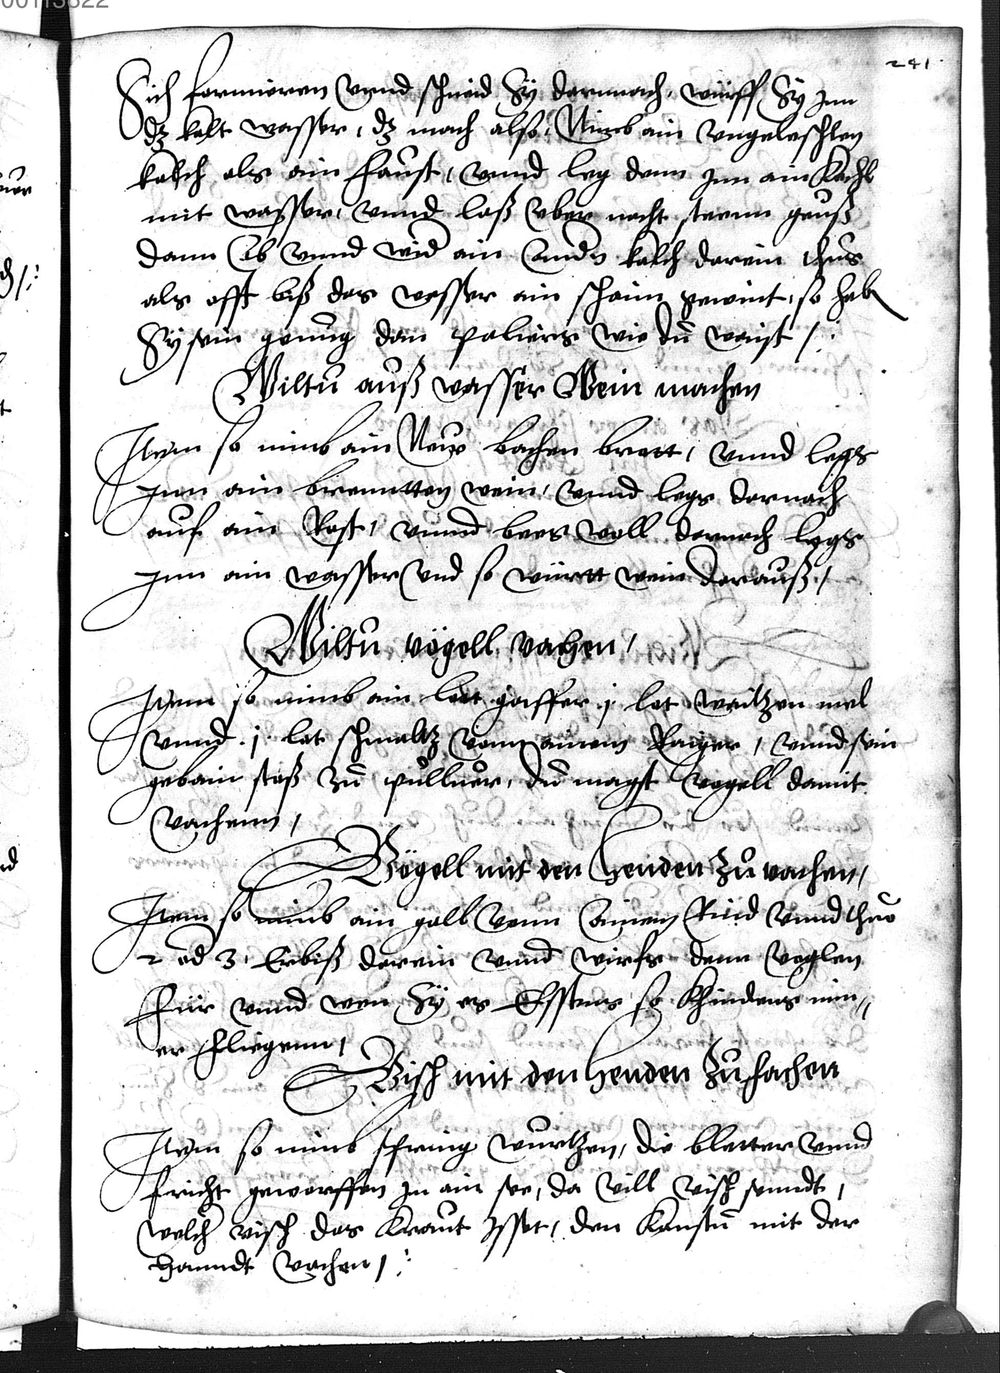 241.
Sich formieren vnnd schneid Sy darnnach, würff Sy Inn
dz kalt wasser, dz mach also, Nimb ain vngeleschten
kalch als ain faust, vnnd leg denn Inn ain Kachl
mit wasser, vnnd laß vber nacht steenn geuß
dann ab vnnd wid ain andn kalch darein thus
als offt biß das wasser ain schaim gewint, so hab
Sy sein genug dan paliers wie du waist /:
Wiltu auß wasser Wein machen
Item so nimb ain New bachen brott, vnnd legs
Inn ain brenntten wein, vnnd legs darnach
auf ain Rost, vnnd bees woll darnach legs
Inn ain wasser vnd so württ wein darauß /
Wiltu vögell vachen /
Item so nimb ain lott gaffer j lot waitzen mel
vnnd j lot schmaltz vom ainem Raiger, vnnd sein
gebain stoß zu pulluer, du magst vogell damit
vachenn /
Vögell mit den henden zu vachen /
Item so nimb ain gall vonn ainem Rind vnnd thuo
2 od 3 Erbiß darein vnnd wirfs denn voglen
für vnnd wen Sy es Essens so khindens nim„
er fliegenn /
Visch mit den henden zu fachen
Item so nimb spring wurtzen, die bletter vnnd
fricht geworffen In ain see, da vill visch sinndt,
welch visch das Kraut Isset, den Kanstu mit der
hanndt vachen /: